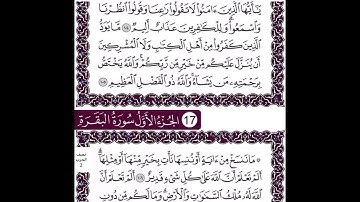 يَـٰٓأَيُّهَا ٱلَّذِينَ ءَامَنُوا۟ لَا تَقُولُوا۟ رَٰعِنَا وَقُولُوا۟ ٱنظُرْنَا
وَٱسْمَعُوا۟ ۗ وَلِلْكَـٰفِرِينَ عَذَابٌ أَلِيمٌ ﴿١٠٤﴾ مَّا يَوَدُّ
ٱلَّذِينَ كَفَرُوا۟ مِنْ أَهْلِ ٱلْكِتَـٰبِ وَلَا ٱلْمُشْرِكِينَ
أَن يُنَزَّلَ عَلَيْكُم مِّنْ خَيْرٍ مِّن رَّبِّكُمْ ۗ وَٱللَّهُ يَخْتَصُّ
بِرَحْمَتِهِۦ مَن يَشَآءُ ۚ وَٱللَّهُ ذُو ٱلْفَضْلِ ٱلْعَظِيمِ ﴿١٠٥﴾
الجزء الأول سورة البقرة 17
۞ مَا نَنسَخْ مِنْ ءَايَةٍ أَوْ نُنسِهَا نَأْتِ بِخَيْرٍ مِّنْهَآ أَوْ مِثْلِهَآ ۗ
أَلَمْ تَعْلَمْ أَنَّ ٱللَّهَ عَلَىٰ كُلِّ شَىْءٍ قَدِيرٌ ﴿١٠٦﴾ أَلَمْ تَعْلَمْ أَنَّ
ٱللَّهَ لَهُۥ مُلْكُ ٱلسَّمَـٰوَٰتِ وَٱلْأَرْضِ ۗ وَمَا لَكُم مِّن دُونِ